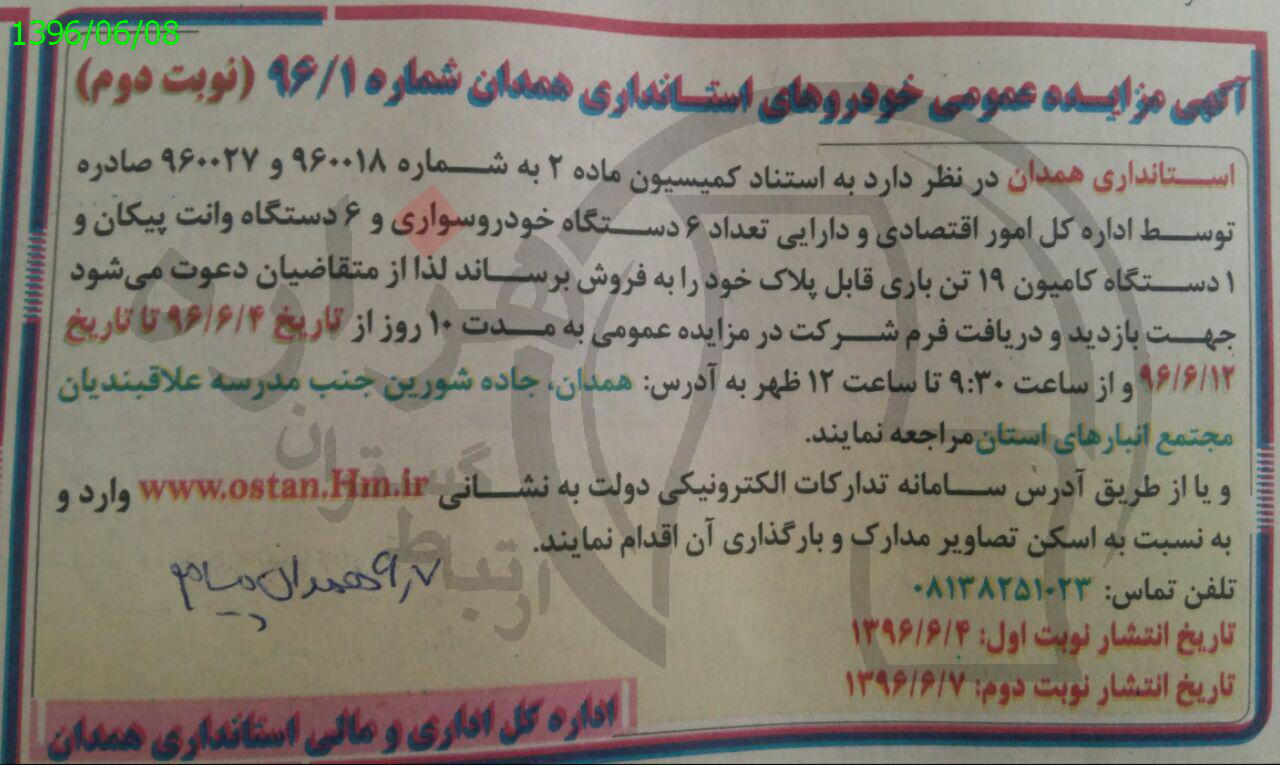 1396/06/08
آگهی مزایده عمومی خودروهای استانداری همدان شماره ۹۶/۱ (نوبت دوم)
استانداری همدان در نظر دارد به استناد کمیسیون ماده ۲ به شماره ۹۶۰۰۱۸ و ۹۶۰۰۲۷ صادره
توسط اداره کل امور اقتصادی و دارایی تعداد ۶ دستگاه خودروسواری و ۶ دستگاه وانت پیکان و
۱ دستگاه کامیون ۱۹ تن باری قابل پلاک خود را به فروش برساند لذا از متقاضیان دعوت می‌شود
جهت بازدید و دریافت فرم شرکت در مزایده عمومی به مدت ۱۰ روز از تاریخ ۹۶/۶/۴ تا تاریخ
۹۶/۶/۱۲ و از ساعت ۹:۳۰ تا ساعت ۱۲ ظهر به آدرس: همدان، جاده شورین جنب مدرسه علاقبندیان
مجتمع انبارهای استان مراجعه نمایند.
و یا از طریق آدرس سامانه تدارکات الکترونیکی دولت به نشانی www.ostan.Hm.ir وارد و
به نسبت به اسکن تصاویر مدارک و بارگذاری آن اقدام نمایند.
تلفن تماس: ۰۸۱۳۸۲۵۱۰۲۳
تاریخ انتشار نوبت اول: ۱۳۹۶/۶/۴
تاریخ انتشار نوبت دوم: ۱۳۹۶/۶/۷
۹٫۷ همدان پیام
اداره کل اداری و مالی استانداری همدان
هزاره
گستران
ارتباط